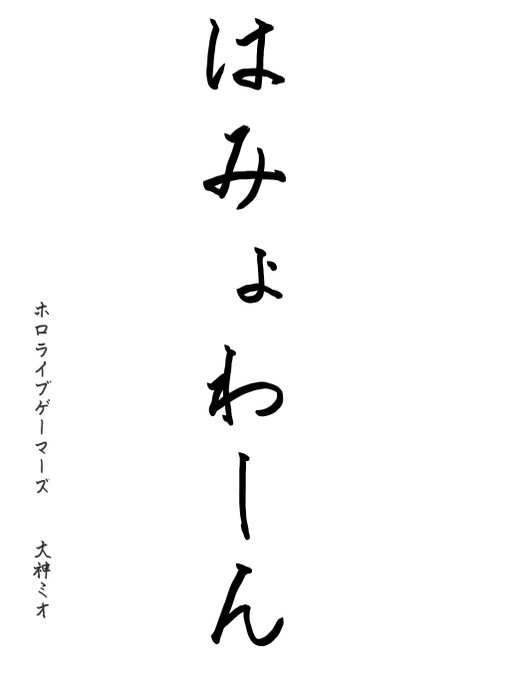 はみょわーん
ホロライブゲーマーズ 大神ミオ